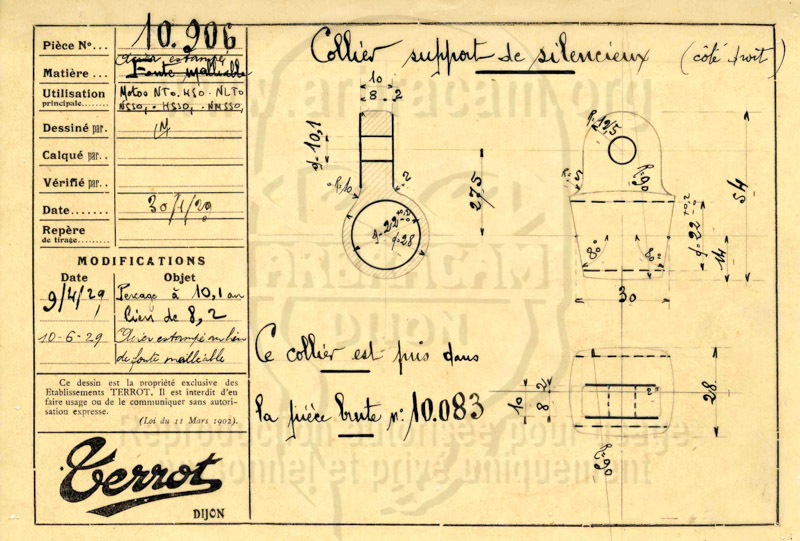 Pièce N°... 10.906
Acier estampé
Matière... Fonte malléable
Utilisation principale... Motos NTO. HSO. NLTO
NSSO, . HSSO, . NMSSO,
Dessiné par.
Calqué par..
Vérifié par..
Date... 30/1/29
Repère de tirage.
MODIFICATIONS
Date Objet
9/4/29 Perçage à 10,1 au
lieu de 8,2
10-6-29 Acier estampé au lieu
de fonte malléable
Ce dessin est la propriété exclusive des
Etablissements TERROT. Il est interdit d'en
faire usage ou de le communiquer sans autori-
sation expresse.
(Loi du 11 Mars 1902).
Terrot
DIJON
Collier support de silencieux (côté droit)
www.arbracam.org
10
8 2
d=10,1
R=10
2
d=22 +0,2
d=28
27,5
R=12,5
R=5
R=90
54
d=22 +0,2
14
80° 80°
30
ARBRACAM
DIJON
Ce collier est pris dans
la pièce brute n° 10.083
10 8 2
2
28
R=90
Reproduction autorisée pour usage
personnel et privé uniquement